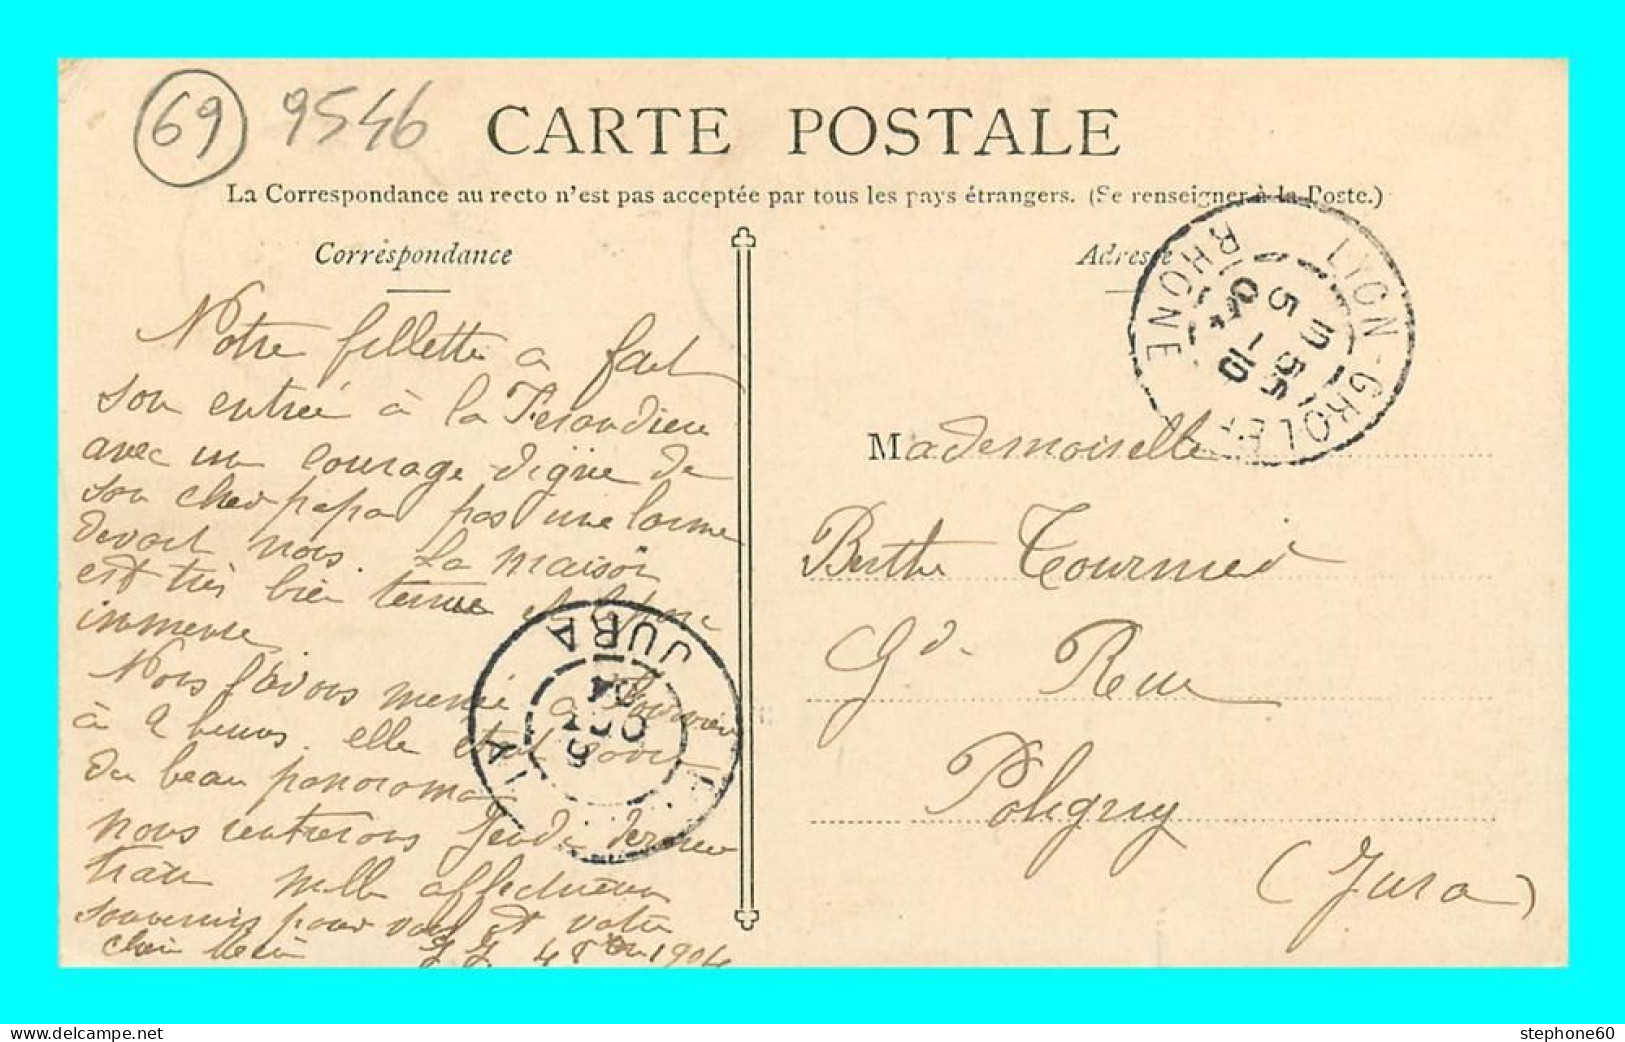 69 9546
CARTE POSTALE
La Correspondance au recto n'est pas acceptée par tous les pays étrangers. (Se renseigner à la Poste.)
Correspondance
Adresse
LYON-GROLEE
RHONE
5 55
5 -10
04
Notre fillette a fait
son entrée à la Ferandière
avec un courage digne de
son cher papa pas une larme
devant nous. La maison
est très bien tenue et
immense
Nous l'avons menée a Fourvière
à 2 heures. elle était
du beau panorama
nous rentrerons Jeudi dernier
train mille affectueux
souvenirs pour vous et votre
chère 4 8bre 1904
JURA
6
OCT
04
Mademoiselle
Berthe Tournier
Gde Rue
Poligny
(Jura)
stephone60